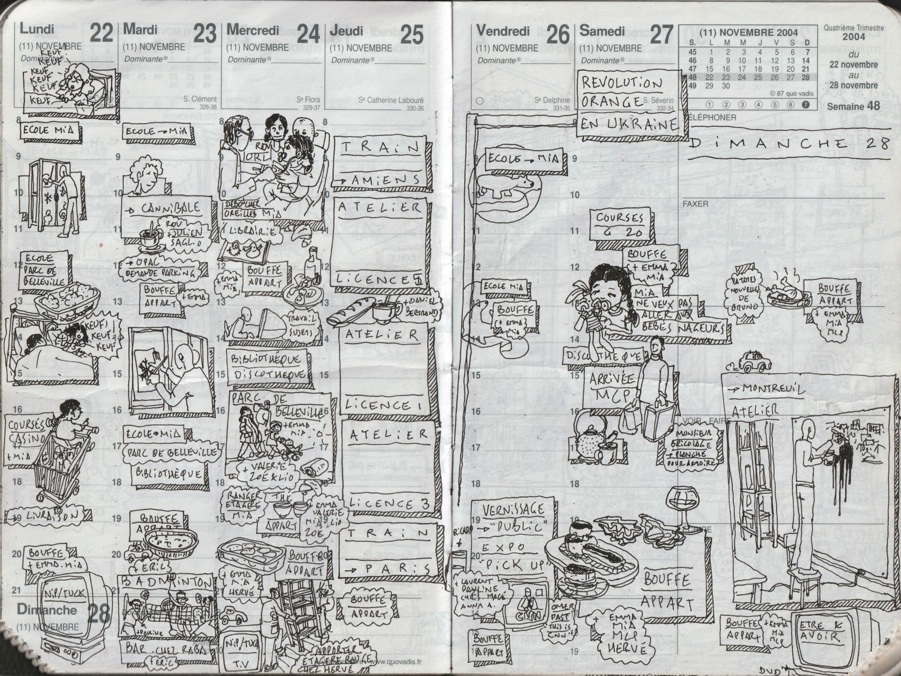 Lundi 22
(11) NOVEMBRE
Dominante
KEUF
KEUF
KEUF
KEUF
KEUF
ECOLE MiA
ECOLE
PARC DE
BELLEVILLE
KEUF!
KEUF
KEUF
COURSES
CASINO
+ MiA
→ LIVRAISON
BOUFFE
+ EMMA MiA
NiP/TUCK
Dimanche 28
(11) NOVEMBRE
Mardi 23
(11) NOVEMBRE
Dominante
S. Clément
328-38
ECOLE → MiA
→ CANNiBALE
+ JULIEN
+ OPAL
DEMANDE PARKING
BOUFFE
APPART
+ EMMA
ECOLE → MiA
PARC DE BELLEVILLE
BiBLiOTHEQUE
BOUFFE
APPART
BADMINTON
BAR
Mercredi 24
(11) NOVEMBRE
Dominante
Se Flora
329-37
ORL
DEBOUCHER
OREILLES MiA
LIBRAIRIE
+ EMMA
MiA
BOUFFE
APPART
TRAVAIL
BiBLiOTHEQUE
DiSCOTHEQUE
PARC DE
BELLEVILLE
+ EMMA
MiA
+ VALERIE
ZOE KLIO
RANGER
ETAGERE
MiA
THE
APPART
+ EMMA
VALERIE
MiA KLIO
ZOE
BOUFFE
APPART
+ EMMA
MiA
HERVE
NiP/TUCK
T.V
APPORTER
ETAGERE ROUGE
CHEZ HERVE
Jeudi 25
(11) NOVEMBRE
Dominante
Se Catherine Labouré
330-36
TRAiN
→ AMiENS
ATELiER
LiCENCE 5
+ DANIEL
ATELiER
LiCENCE 1
ATELiER
LiCENCE 3
TRAiN
→ PARiS
BOUFFE
APPART
www.quovadis.fr
Vendredi 26
(11) NOVEMBRE
Dominante
Se Delphine
331-35
ECOLE → MiA
ECOLE MiA
BOUFFE
+ EMMA
MiA
VERNiSSAGE
→ "PUBLiC"
EXPO
"PiCK UP"
+ LAURENT
PAULINE
BOUFFE
APPART
Samedi 27
(11) NOVEMBRE
Dominante
S. Séverin
332-34
REVOLUTiON
ORANGE
EN UKRAiNE
COURSES
G 20
BOUFFE
+ EMMA
MiA
MiA
NE VEUX PAS
ALLER AUX
BEBES NAGEURS
DiSCOTHEQUE
ARRiVÉE
MCP
BRiCOLAGE
→ PLANCHE
POUR ARMOIRE
BOUFFE
APPART
+ EMMA
MiA
MCP
HERVE
(11) NOVEMBRE 2004
S. L M M J V S D
45 1 2 3 4 5 6 7
46 8 9 10 11 12 13 14
47 15 16 17 18 19 20 21
48 22 23 24 25 26 27 28
49 29 30
© 87 quo vadis
1 2 3 4 5 6 7
Quatrième Trimestre
2004
du
22 novembre
au
28 novembre
Semaine 48
TÉLÉPHONER
DiMANCHE 28
FAXER
DE
BRUNO
BOUFFE
APPART
+ EMMA
MiA
MCP
VOIR - FAIRE
→ MONTREUiL
ATELiER
BOUFFE
APPART
+ EMMA
MiA
MCP
ETRE &
AVOiR
DVD